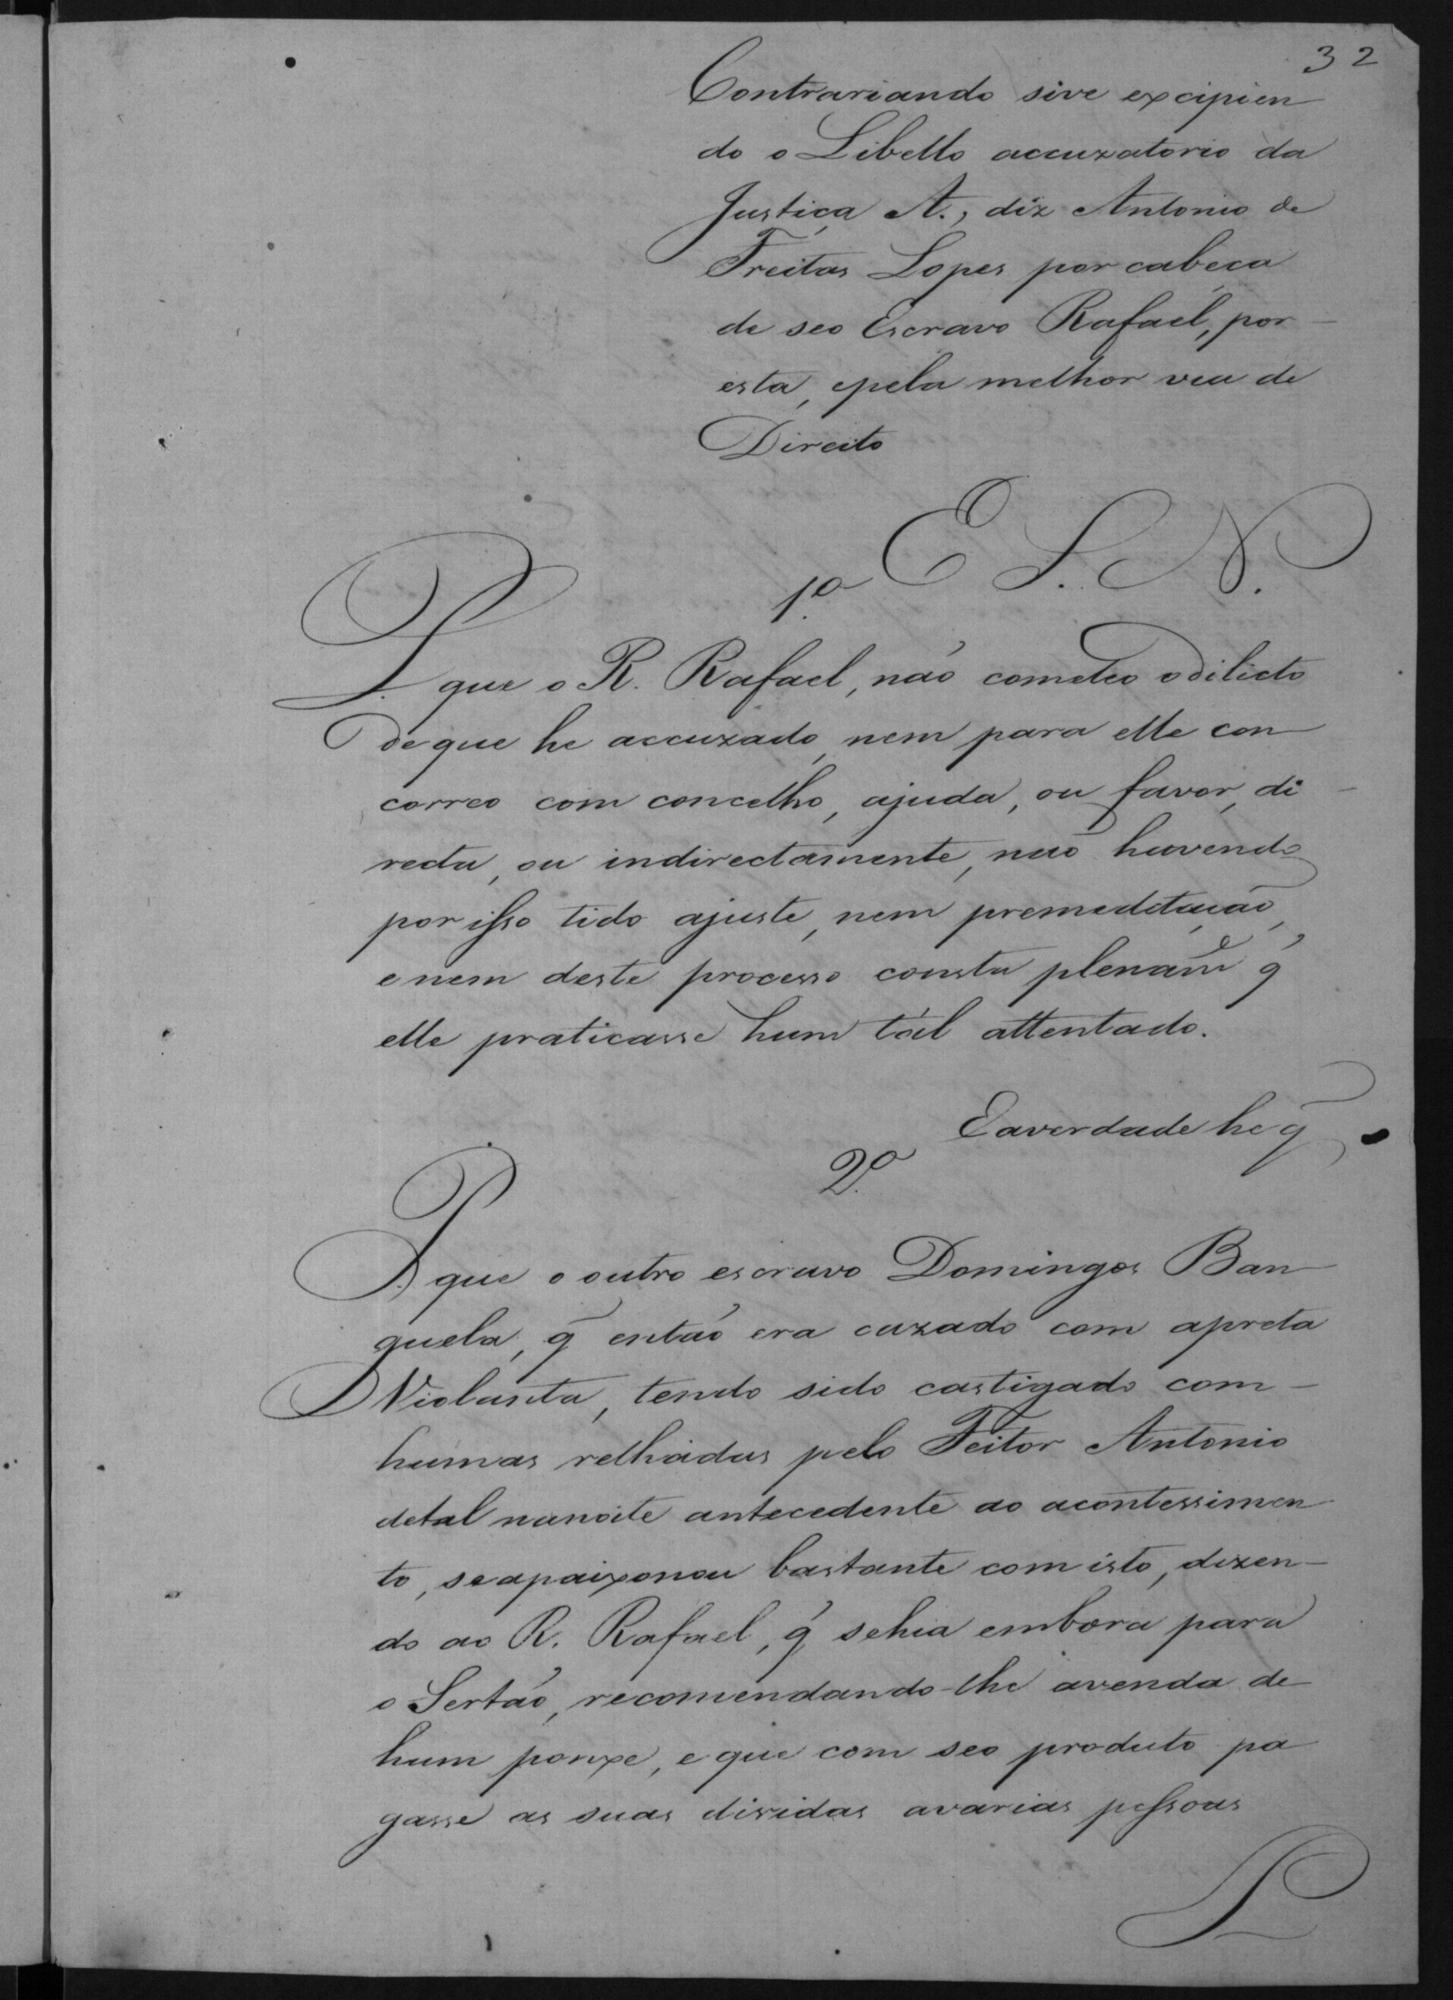 32
Contrariando sive excipien
do o Libello accuzatorio da
Justiça A., diz Antonio de
Freitas Lopes por cabeça
de seo Escravo Rafael, por
esta, epela melhor via de
Direito
E S. N.
1.º
P. que o R. Rafael, não cometeo o dilicto
deque he accuzado, nem para elle con
correo com concelho, ajuda, ou favor, di
recta, ou indirectamente, não havendo
por isso tido ajuste, nem premeditação,
e nem deste processo consta plenamᵉ q̃
elle praticasse hum tál attentado.
Eaverdade he q̃
2.º
P. que o outro escravo Domingos Ban
guela, q̃ então era cazado com apreta
Violanta, tendo sido castigado com
humas relhádas pelo Feitor Antonio
detal nanoite antecedente ao acontessimen
to, seapaixonou bastante com isto, dizen-
do ao R. Rafael, q̃ sehia embora para
o Sertão, recomendando-lhe avenda de
hum ponxe, e que com seo produto pa
gasse as suas dividas avarias pessoas